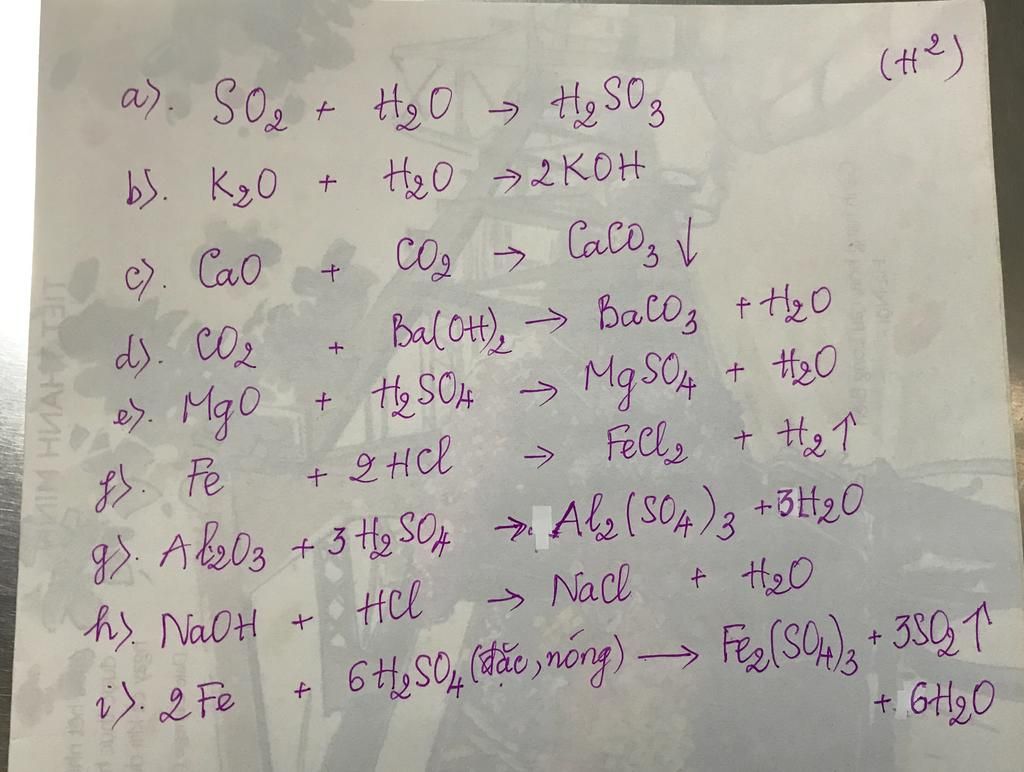 (H²)
a). SO₂ + H₂O → H₂SO₃
b). K₂O + H₂O → 2KOH
c). CaO + CO₂ → CaCO₃ ↓
d). CO₂ + Ba(OH)₂ → BaCO₃ + H₂O
e). MgO + H₂SO₄ → MgSO₄ + H₂O
f). Fe + 2HCl → FeCl₂ + H₂ ↑
g). Al₂O₃ + 3H₂SO₄ → Al₂(SO₄)₃ + 3H₂O
h). NaOH + HCl → NaCl + H₂O
i). 2Fe + 6H₂SO₄ (đặc, nóng) → Fe₂(SO₄)₃ + 3SO₂ ↑
+ 6H₂O